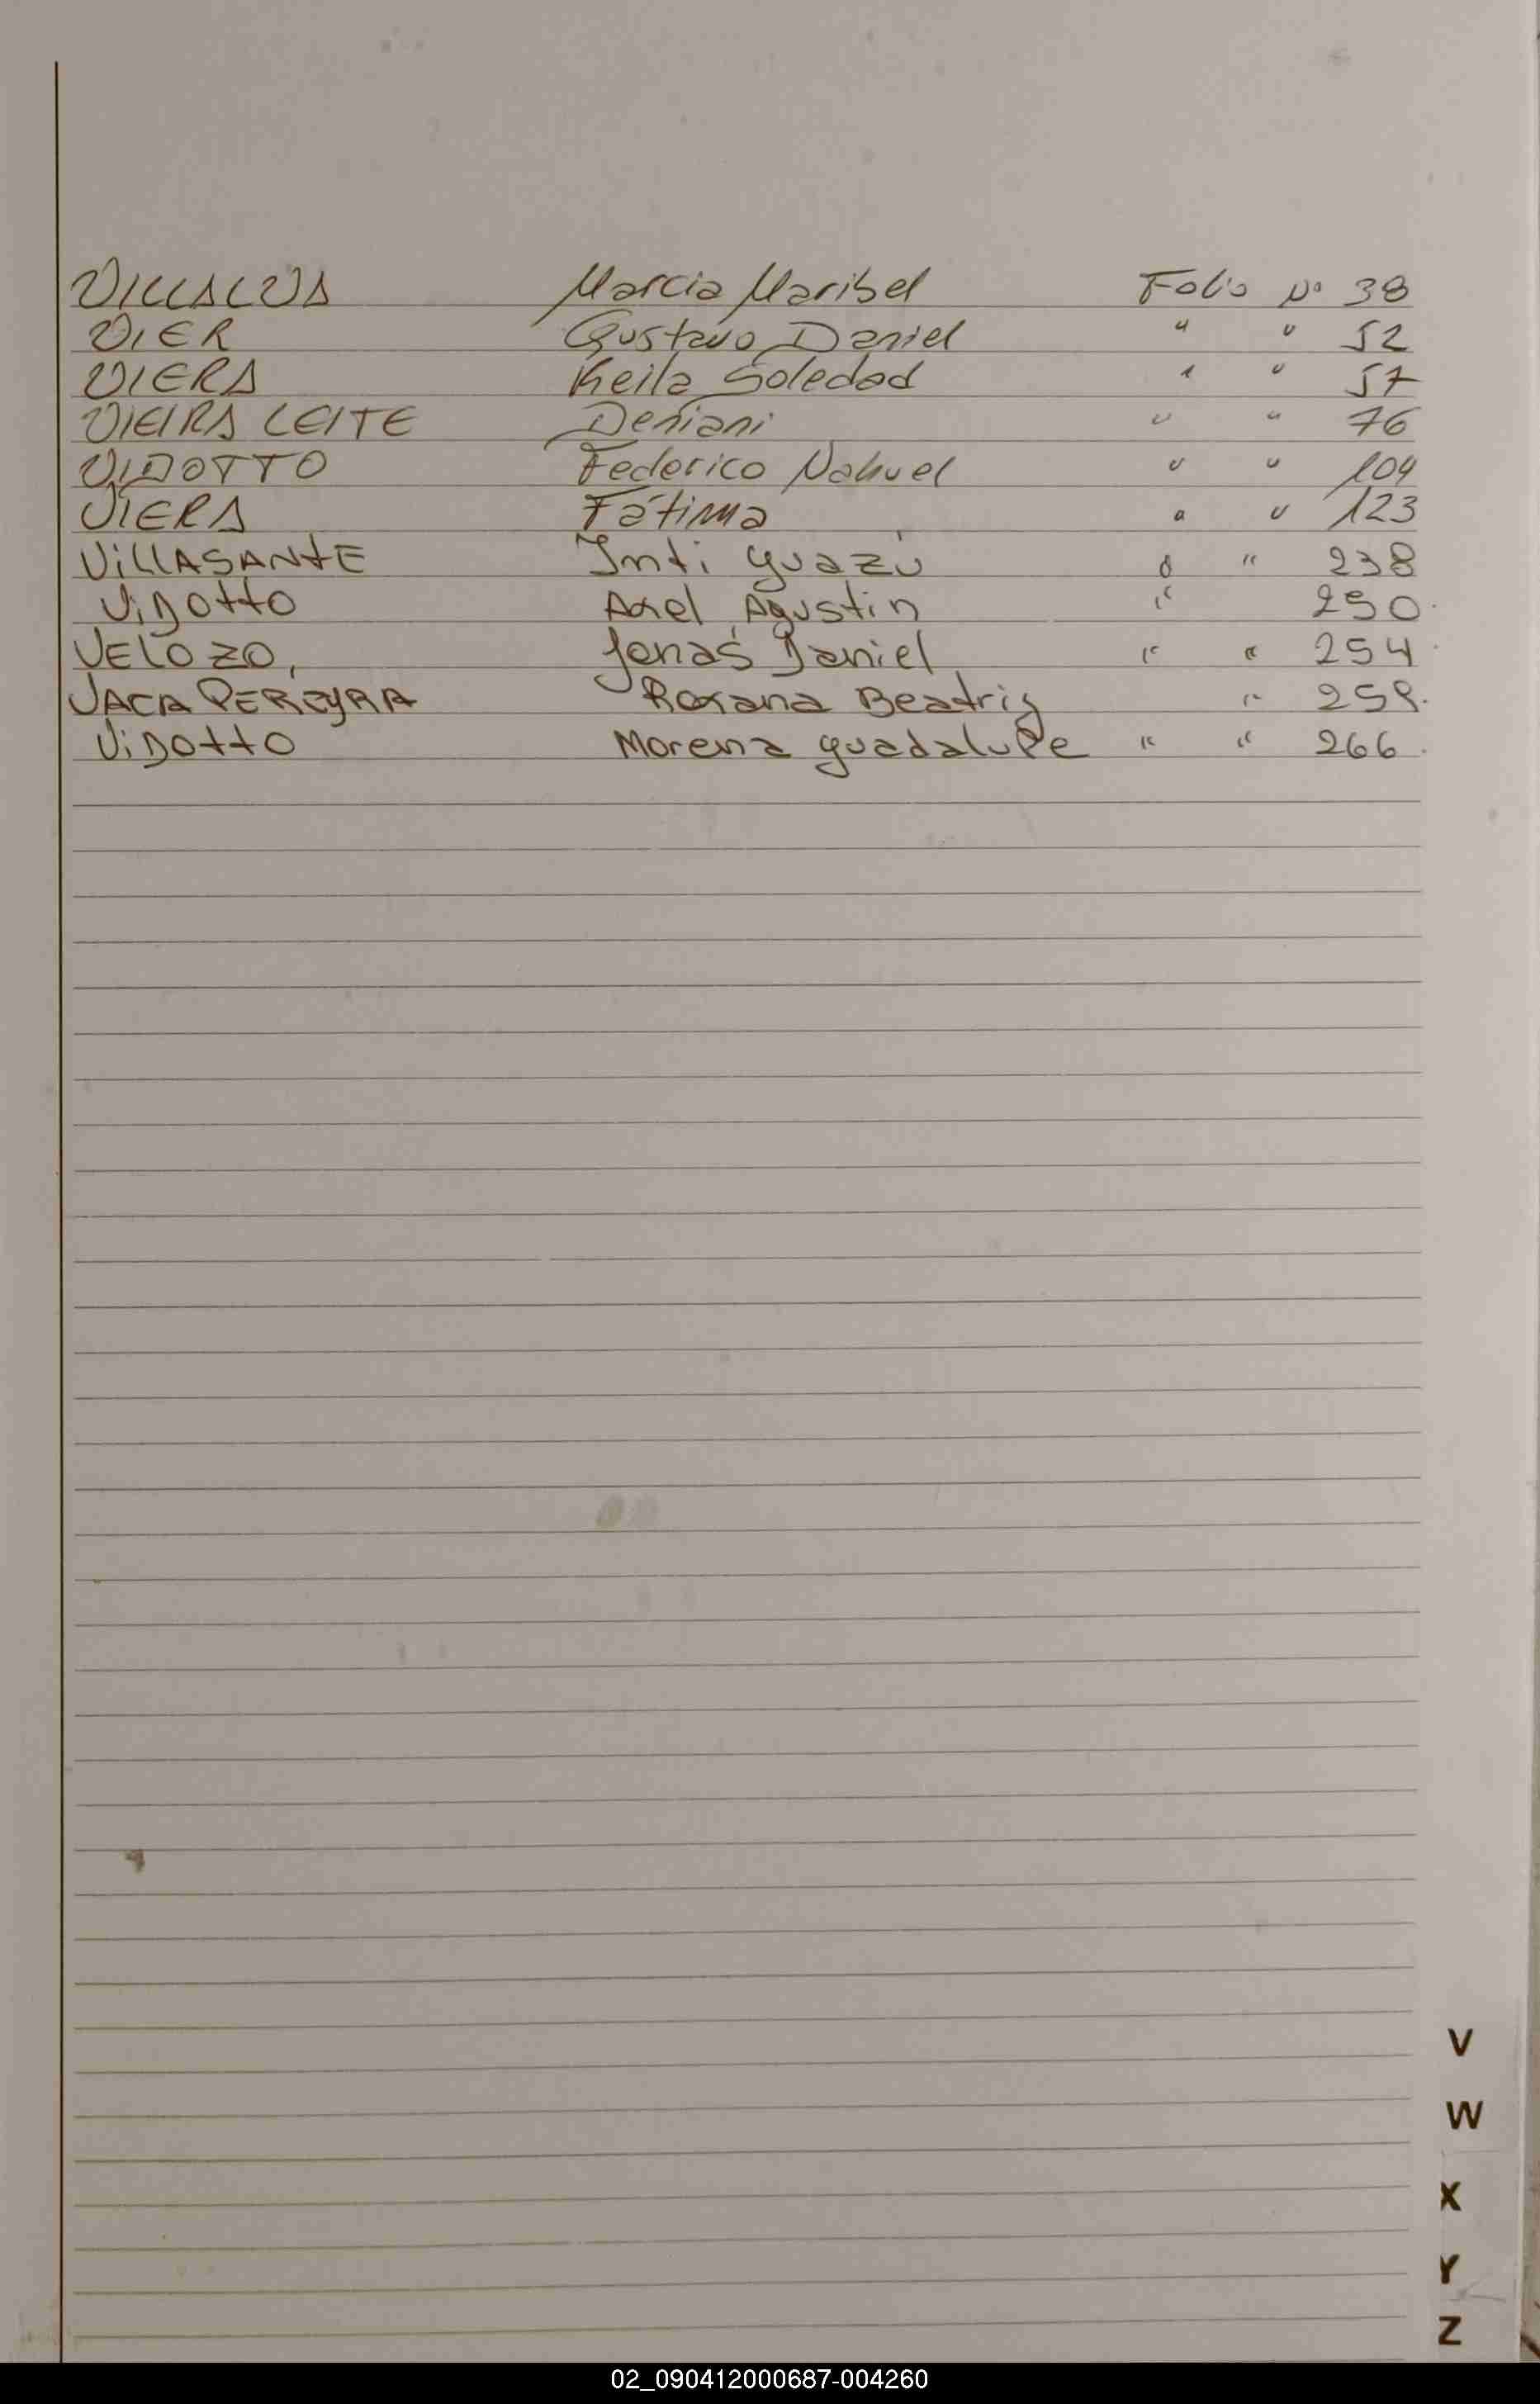 VILLALVA Marcia Maribel Folio Nº 38
VIER Gustavo Daniel " " 52
VIERA Keila Soledad " " 57
VIEIRA LEITE Deniani " " 76
VIDOTTO Federico Nahuel " " 104
VIERA Fátima " " 123
ViLLASANtE Inti guazú " " 238
ViDOttO Axel Agustin " 250.
VELOZO, Jonas Daniel " " 254.
VACA PEREyRA Roxana Beatriz " 259.
ViDOttO Morena guadaluPe " " 266.
V
W
X
Y
Z
02_090412000687-004260